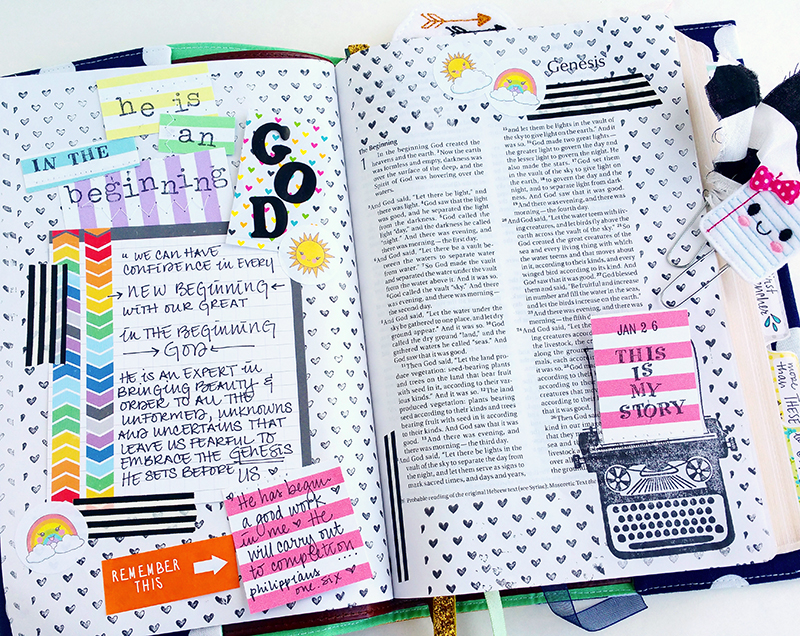 he is
an
IN THE
beginning
GOD
" WE CAN HAVE
CONFIDENCE in EVERY
NEW BEGINNING
WITH OUR GREAT
in THE BEGINNING
GOD
HE IS AN EXPERT in
BRINGING BEAUTY &
ORDER TO ALL THE
UNFORMED, UNKNOWNS
AND UNCERTAINS THAT
LEAVE US FEARFUL TO
EMBRACE THE GENESIS
HE SETS BEFORE US
He has begun
a good work
in me He
will carry out
to completion
philippians
one.six
REMEMBER
THIS
Genesis
The Beginning
1 In the beginning God created the
heavens and the earth. 2Now the earth
was formless and empty, darkness was
over the surface of the deep, and the
Spirit of God was hovering over the
waters.
3And God said, "Let there be light," and
there was light. 4God saw that the light
was good, and he separated the light
from the darkness. 5God called the
light "day," and the darkness he called
"night." And there was evening, and
there was morning—the first day.
6And God said, "Let there be a vault be-
tween the waters to separate water
from water." 7So God made the vault
and separated the water under the vault
from the water above it. And it was so.
8God called the vault "sky." And there
was evening, and there was morning—
the second day.
9And God said, "Let the water under the
sky be gathered to one place, and let dry
ground appear." And it was so. 10God
called the dry ground "land," and the
gathered waters he called "seas." And
God saw that it was good.
11Then God said, "Let the land pro-
duce vegetation: seed-bearing plants
and trees on the land that bear fruit
with seed in it, according to their vari-
ous kinds." And it was so. 12The land
produced vegetation: plants bearing
seed according to their kinds and trees
bearing fruit with seed in it according
to their kinds. And God saw that it was
good. 13And there was evening, and
there was morning—the third day.
14And God said, "Let there be lights in the
vault of the sky to separate the day from
the night, and let them serve as signs to
mark sacred times, and days and years,
15and let them be lights in the vault of
the sky to give light on the earth." And it
was so. 16God made two great lights—
the greater light to govern the day and
the lesser light to govern the night. He
also made the stars. 17God set them
in the vault of the sky to give light on
the earth, 18to govern the day and the
night, and to separate light from dark-
ness. And God saw that it was good.
19And there was evening, and there was
morning—the fourth day.
20And God said, "Let the water teem with liv-
ing creatures, and let birds fly above the
earth across the vault of the sky." 21So
God created the great creatures of the
sea and every living thing with which
the water teems and that moves about
in it, according to their kinds, and every
winged bird according to its kind. And
God saw that it was good. 22God blessed
them and said, "Be fruitful and increase
in number and fill the water in the seas,
and let the birds increase on the earth."
23And there was evening, and there was
morning—the fifth
24And God said, "Let
ing creatures accor
the livestock,
along the grou
mals, each acc
it was so.
Probable reading of the original Hebrew text (see Syriac); Masoretic Text the
JAN 26
THIS
IS
MY
STORY